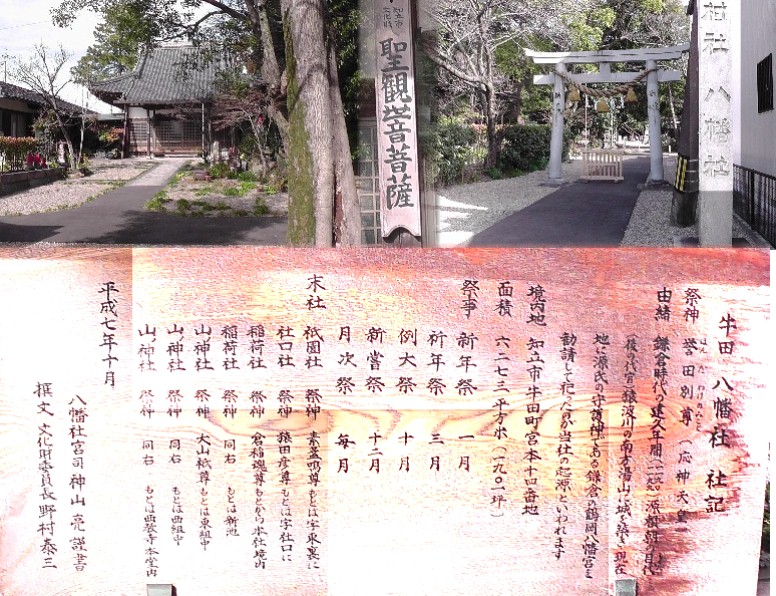 知立市
文化財
聖観世音菩薩
村社 八幡社
牛田 八幡社 社記
祭神 誉田別尊(応神天皇)
ほんだわけのみこと
由緒 鎌倉時代の建久年間 源頼朝の目代
(後の代官)猿渡川の南岩湯山に城を築き現在
地に源氏の守護神である鎌倉の鶴岡八幡宮を
勧請して祀ったのが当社の起源といわれます
境内地 知立市牛田町宮本十四番地
面積 六二七三平方米(一九〇一坪)
祭事 新年祭 一月
祈年祭 三月
例大祭 十月
新嘗祭 十二月
月次祭 毎月
末社 祇園社 祭神 素盞鳴尊もとは字東裏に
社口社 祭神 猿田彦尊もとは字社口に
稲荷社 祭神 倉稲魂尊もとから本社境内
稲荷社 祭神 同右 もとは新池
山神社 祭神 大山祇尊もとは東組中
山ノ神社 祭神 同右 もとは西組中
山ノ神社 祭神 同右 もとは西教寺本堂内
平成七年十月
八幡社宮司 神山 亮 謹書
撰文 文化財委員長 野村泰三